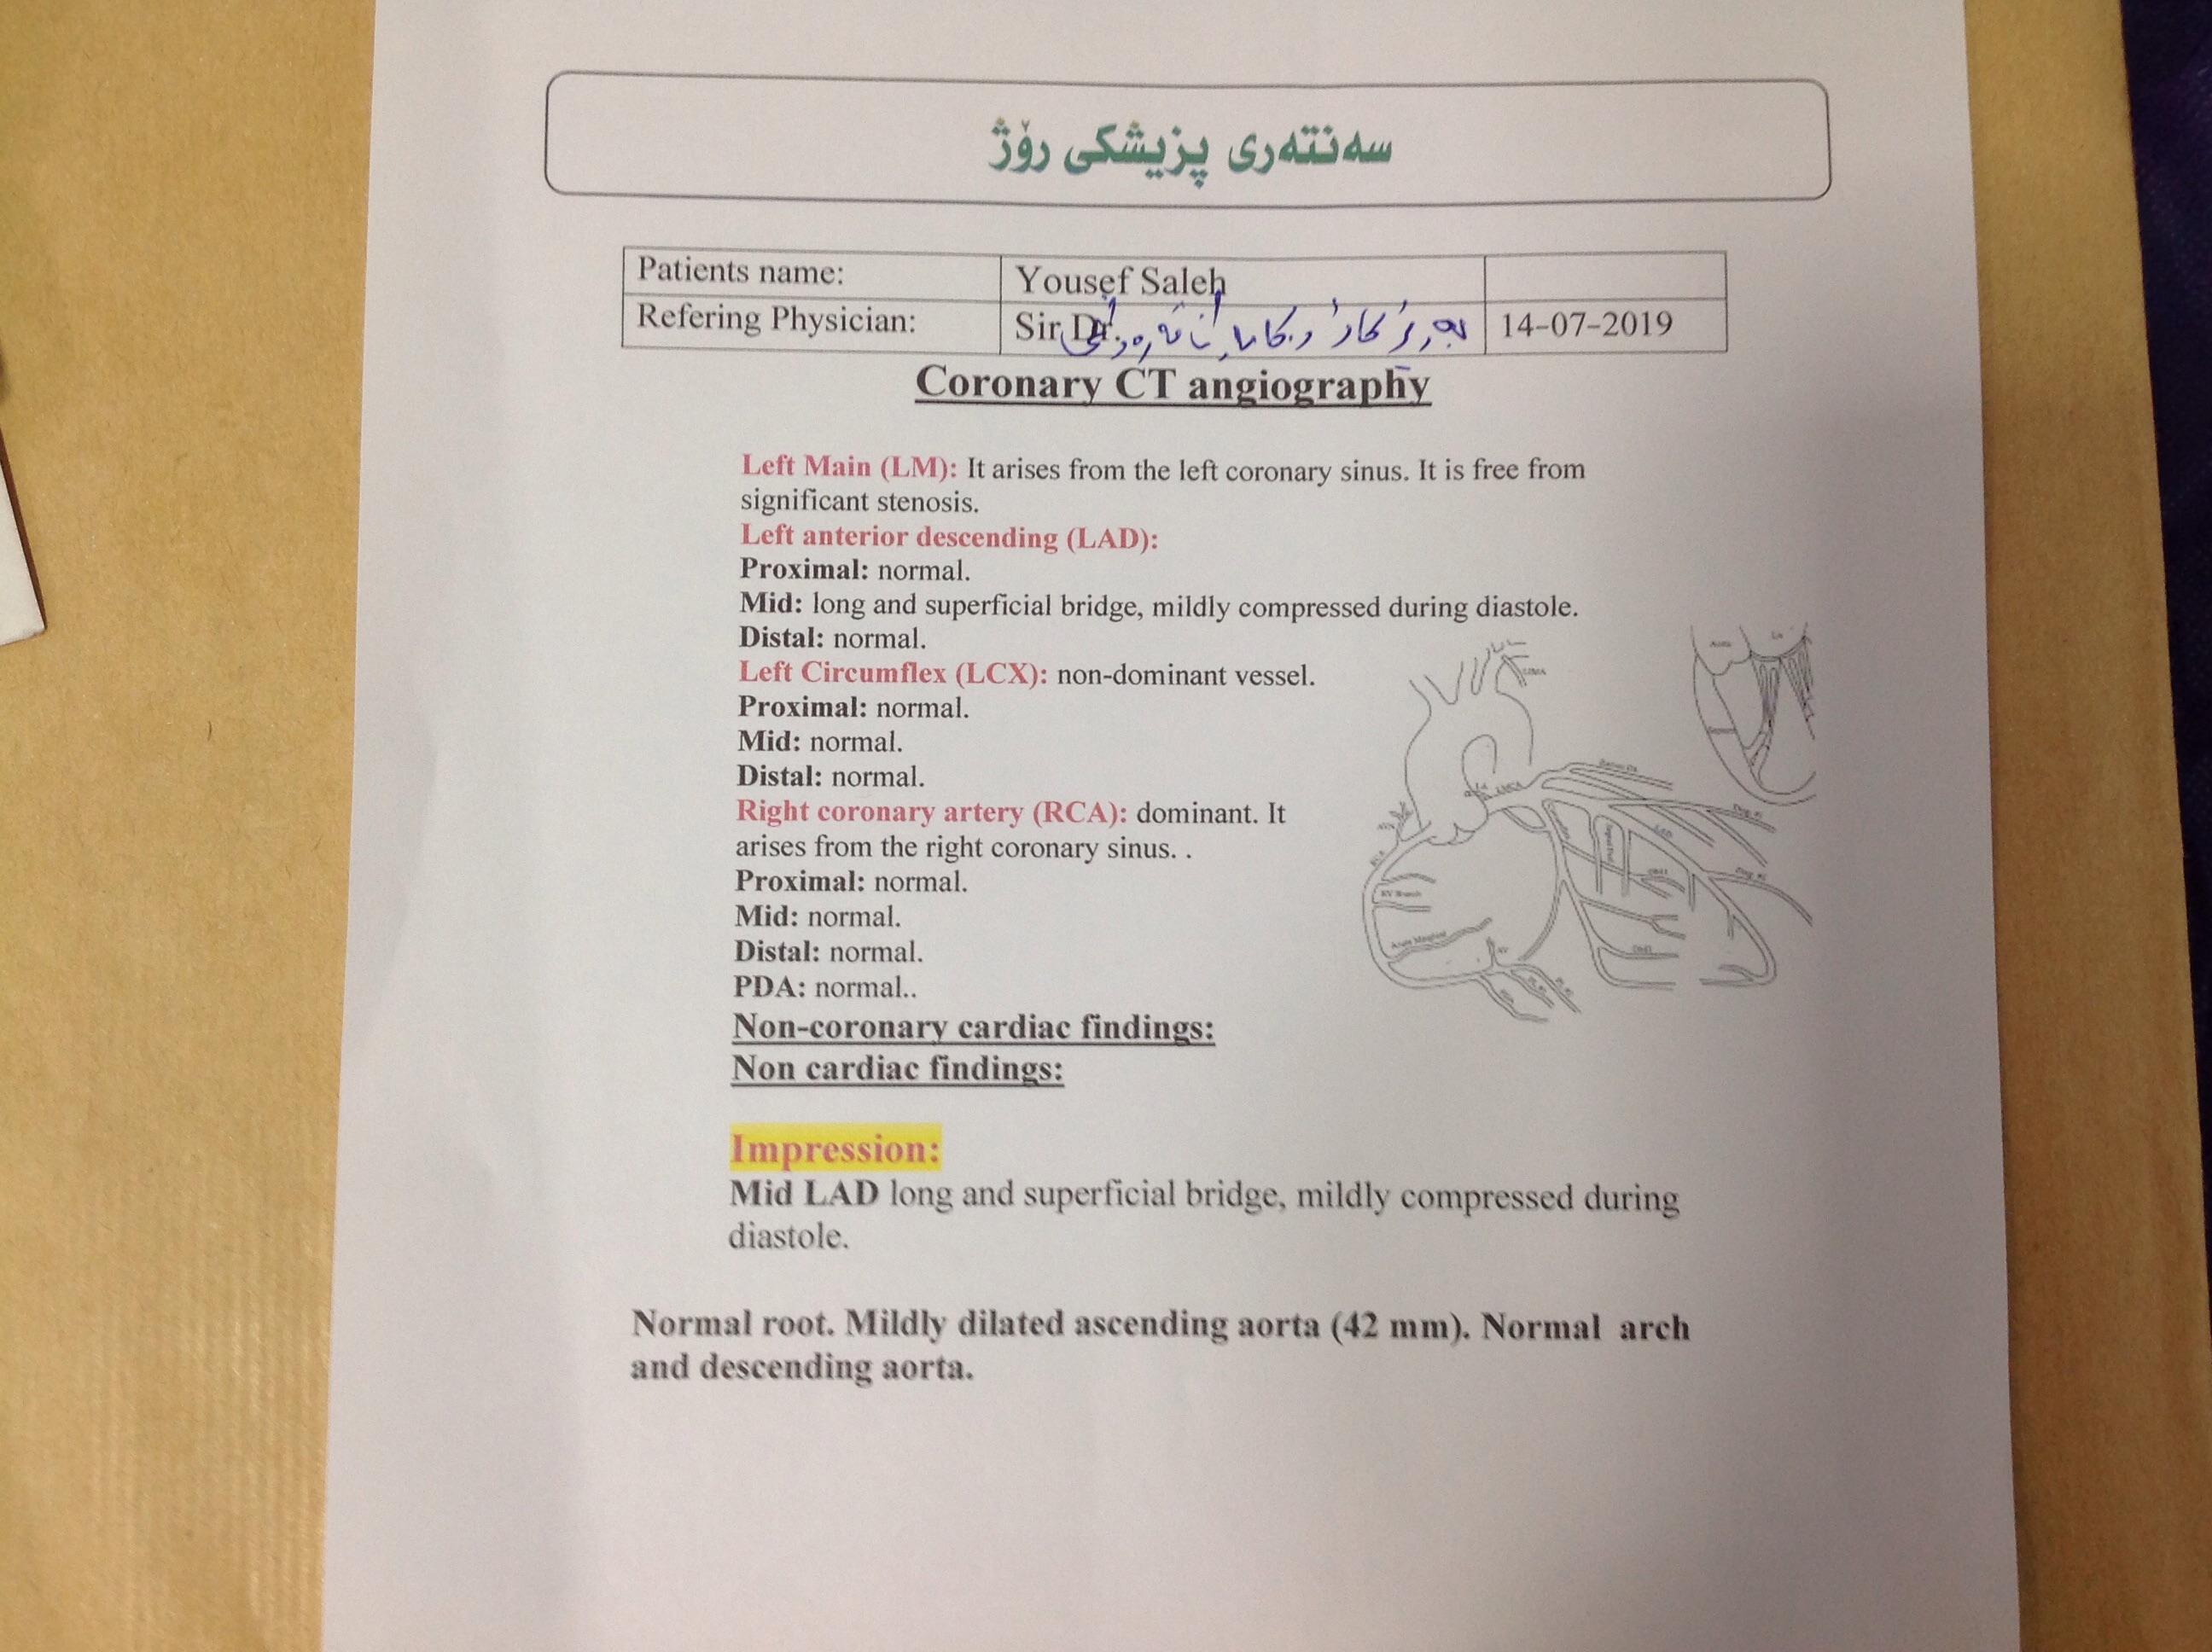 سەنتەری پزیشکی رۆژ
Patients name: Yousef Saleh
Refering Physician: Sir Dr. 14-07-2019
Coronary CT angiography
Left Main (LM): It arises from the left coronary sinus. It is free from
significant stenosis.
Left anterior descending (LAD):
Proximal: normal.
Mid: long and superficial bridge, mildly compressed during diastole.
Distal: normal.
Left Circumflex (LCX): non-dominant vessel.
Proximal: normal.
Mid: normal.
Distal: normal.
Right coronary artery (RCA): dominant. It
arises from the right coronary sinus. .
Proximal: normal.
Mid: normal.
Distal: normal.
PDA: normal..
Non-coronary cardiac findings:
Non cardiac findings:
Impression:
Mid LAD long and superficial bridge, mildly compressed during
diastole.
Normal root. Mildly dilated ascending aorta (42 mm). Normal arch
and descending aorta.
RCA
RV Branch
Acute Marginal